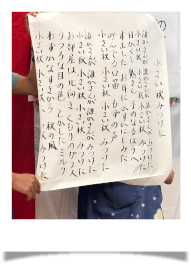 小さい秋みつけた
誰かさんが 誰かさんが 誰かさんが みつけた
小さい秋 小さい秋 小さい秋 みつけた
目かくし鬼さん 手のなるほうへ
すましたお耳に かすかにしみた
口笛 もずの声
小さい秋 小さい秋 小さい秋 みつけた
誰かさんが 誰かさんが 誰かさんが みつけた
小さい秋 小さい秋 小さい秋 みつけた
お部屋は北向き くもりのガラス
うつろな目の色 とかしたミルク
わずかなすきから 秋の風
小さい秋 小さい秋 小さい秋 みつけた
の